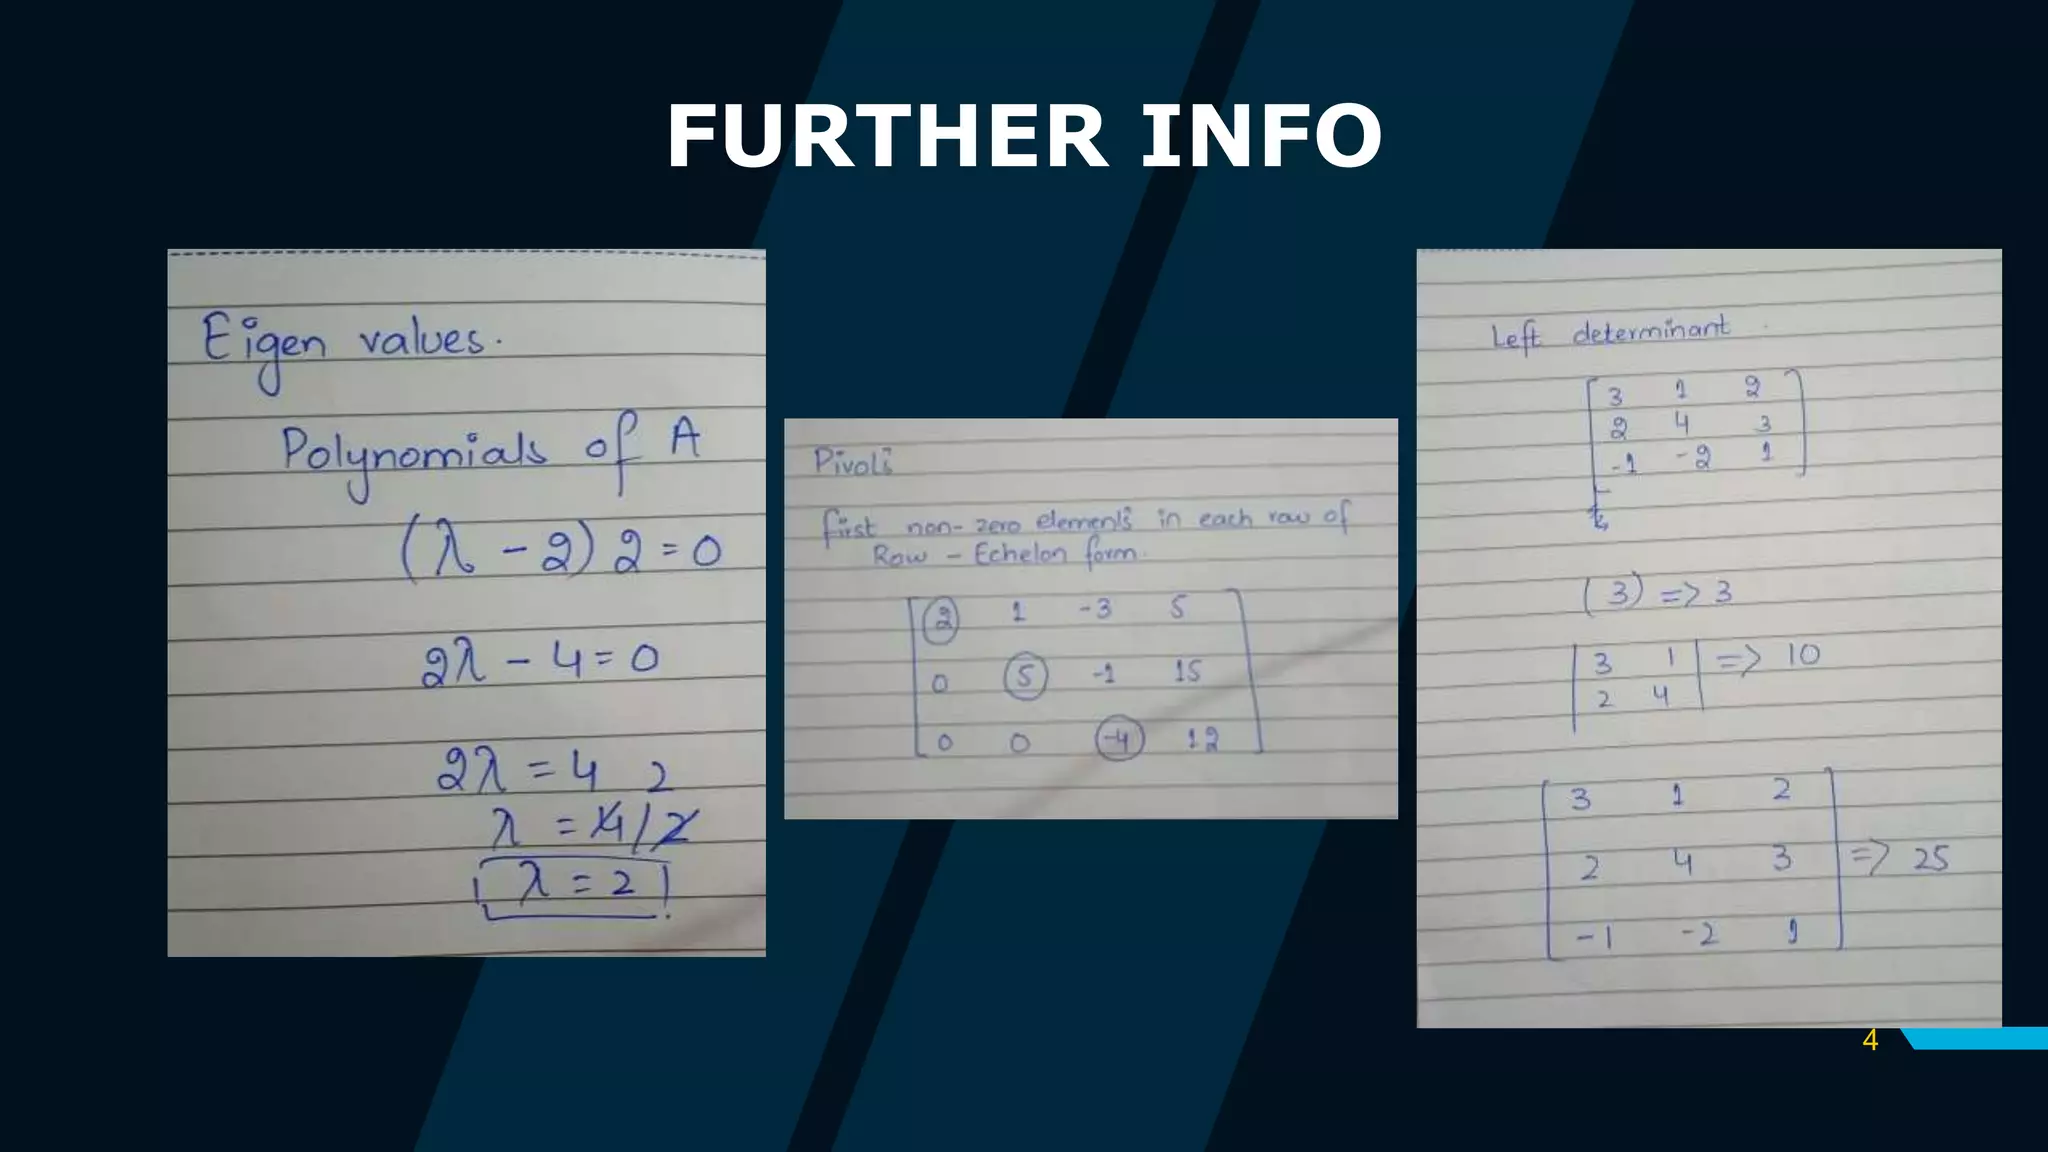 FURTHER INFO
Eigen values.
Polynomials of A
(λ - 2) 2 = 0
2λ - 4 = 0
2λ = 4 2
λ = 4/2
λ = 2
Pivots
first non-zero elements in each row of
Row - Echelon form.
2 1 -3 5
0 5 -1 15
0 0 -4 12
Left determinant.
3 1 2
2 4 3
-1 -2 1
(3) => 3
3 1 => 10
2 4
3 1 2
2 4 3 => 25
-1 -2 1
4